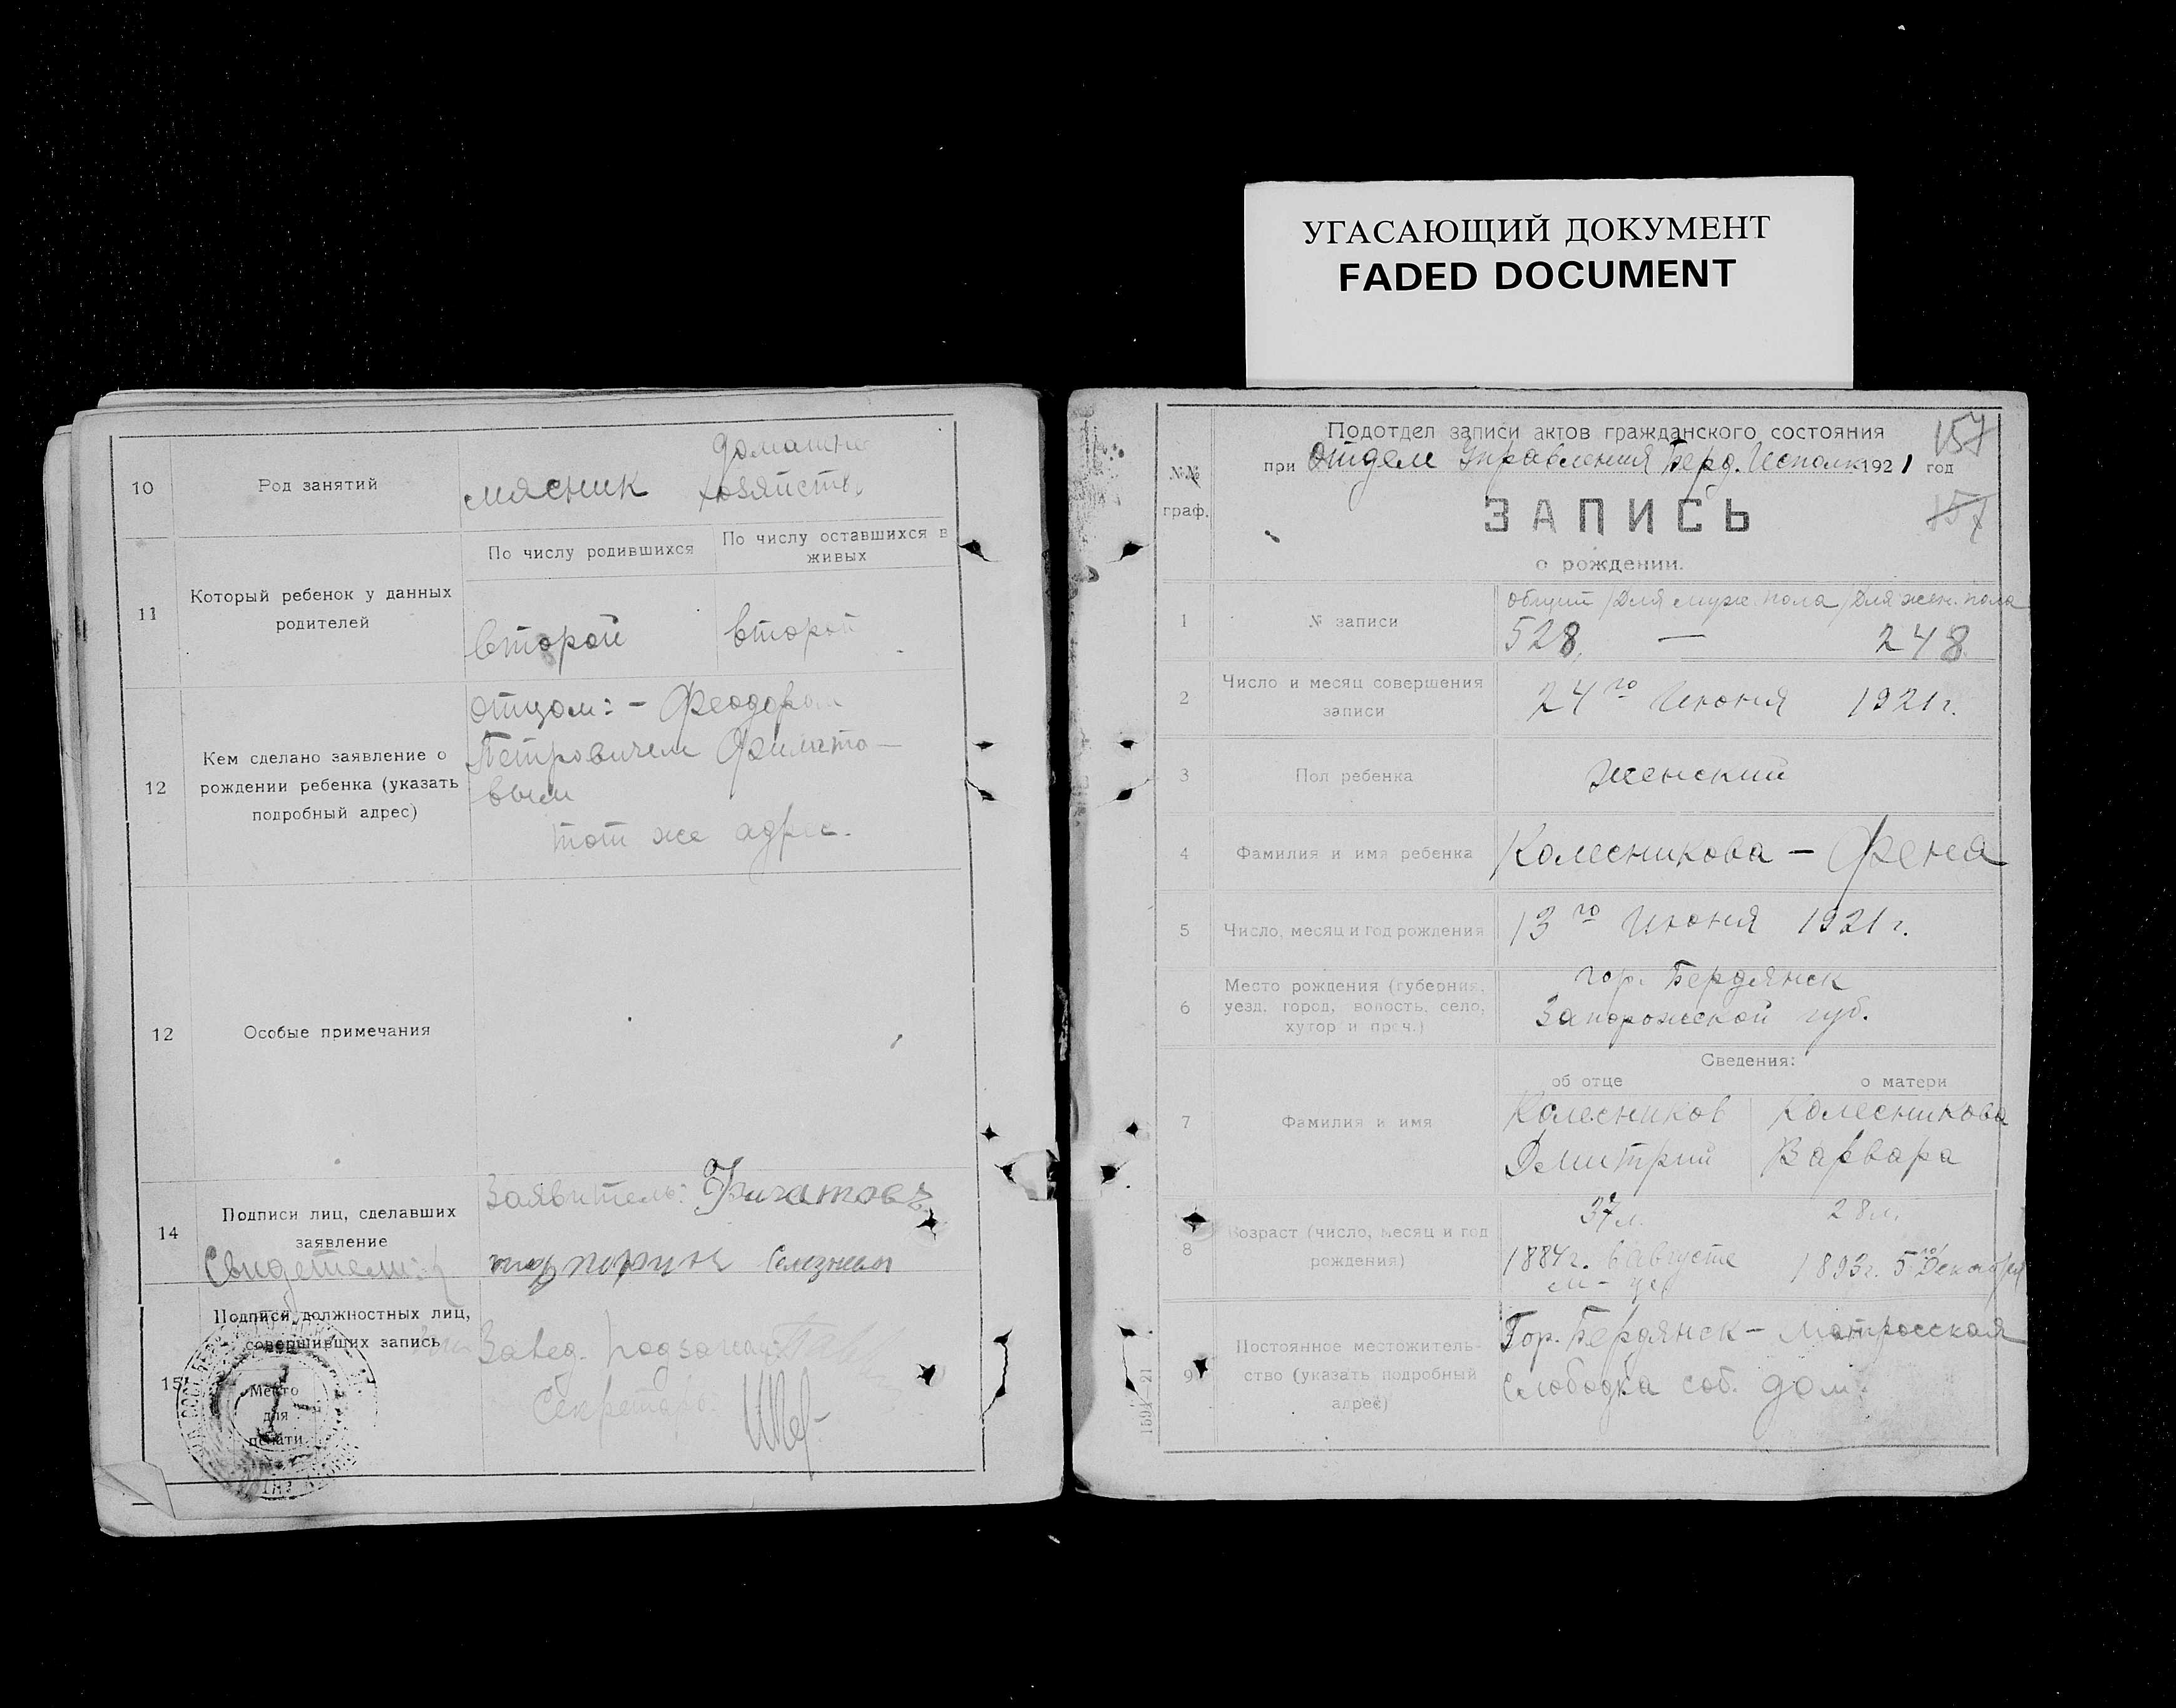 УГАСАЮЩИЙ ДОКУМЕНТ
FADED DOCUMENT
10
Род занятий
мясник
домашне
хозяйств.
11
Который ребенок у данных
родителей
По числу родившихся
По числу оставшихся в
живых
второй
второй
12
Кем сделано заявление о
рождении ребенка (указать
подробный адрес)
отцом: – Феодором
Петровичем Филато–
вым
тот же адрес.
12
Особые примечания
14
Подписи лиц, сделавших
заявление
Свидетели:
Заявитель: Филатовъ
Селезнева
15
Подписи должностных лиц,
совершивших запись
Место
для
печати
Завед. подзагсом
Секретарь
157
157
№№
граф.
Подотдел записи актов гражданского состояния
при Отделе Управления Берд. Исполк. 1921 год
ЗАПИСЬ
о рождении.
1
№ записи
общий / Для муж. пола / Для жен. пола
528 — 248
2
Число и месяц совершения
записи
24го Июня 1921 г.
3
Пол ребенка
женский
4
Фамилия и имя ребенка
Колесникова – Феня
5
Число, месяц и год рождения
13го Июня 1921 г.
6
Место рождения (губерния,
уезд, город, волость, село,
хутор и проч.)
гор. Бердянск
Запорожской губ.
Сведения:
об отце
о матери
7
Фамилия и имя
Колесников
Дмитрий
Колесникова
Варвара
8
Возраст (число, месяц и год
рождения)
37 л.
1884 г. в Августе
м–це
28 л.
1893 г. 5го Декабря
9
Постоянное местожитель-
ство (указать подробный
адрес)
Гор. Бердянск – Матросская
слободка соб. дом.
1591–21